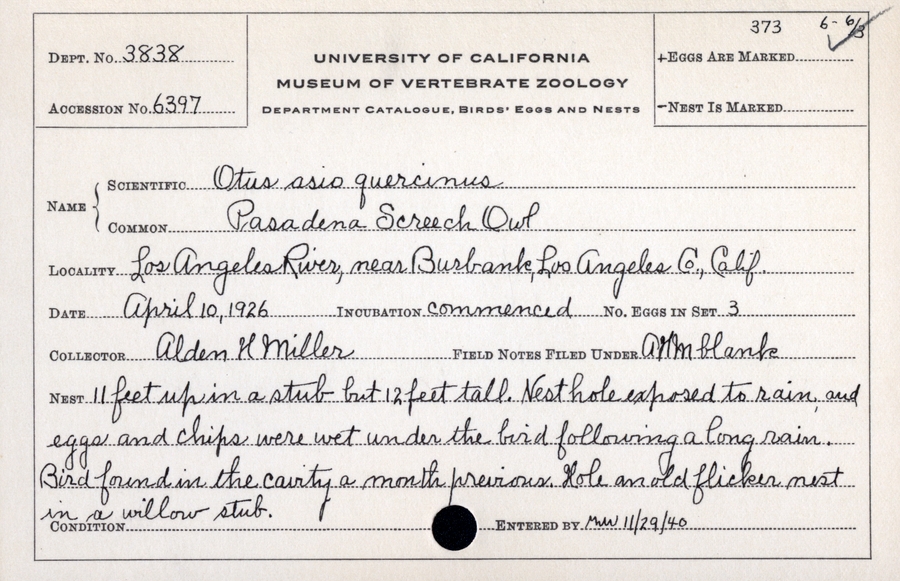 373 6-6/3
DEPT. No. 3838
UNIVERSITY OF CALIFORNIA
+EGGS ARE MARKED
MUSEUM OF VERTEBRATE ZOOLOGY
ACCESSION No. 6397
DEPARTMENT CATALOGUE, BIRDS' EGGS AND NESTS
-NEST IS MARKED
NAME
SCIENTIFIC Otus asio quercinus
COMMON Pasadena Screech Owl
LOCALITY Los Angeles River, near Burbank, Los Angeles Co., Calif.
DATE April 10, 1926 INCUBATION commenced No. EGGS IN SET 3
COLLECTOR Alden H Miller FIELD NOTES FILED UNDER AHM blank
NEST 11 feet up in a stub but 12 feet tall. Nest hole exposed to rain, and
eggs and chips were wet under the bird following a long rain.
Bird found in the cavity a month previous. Hole an old flicker nest
in a willow stub.
CONDITION ENTERED BY 11/29/40